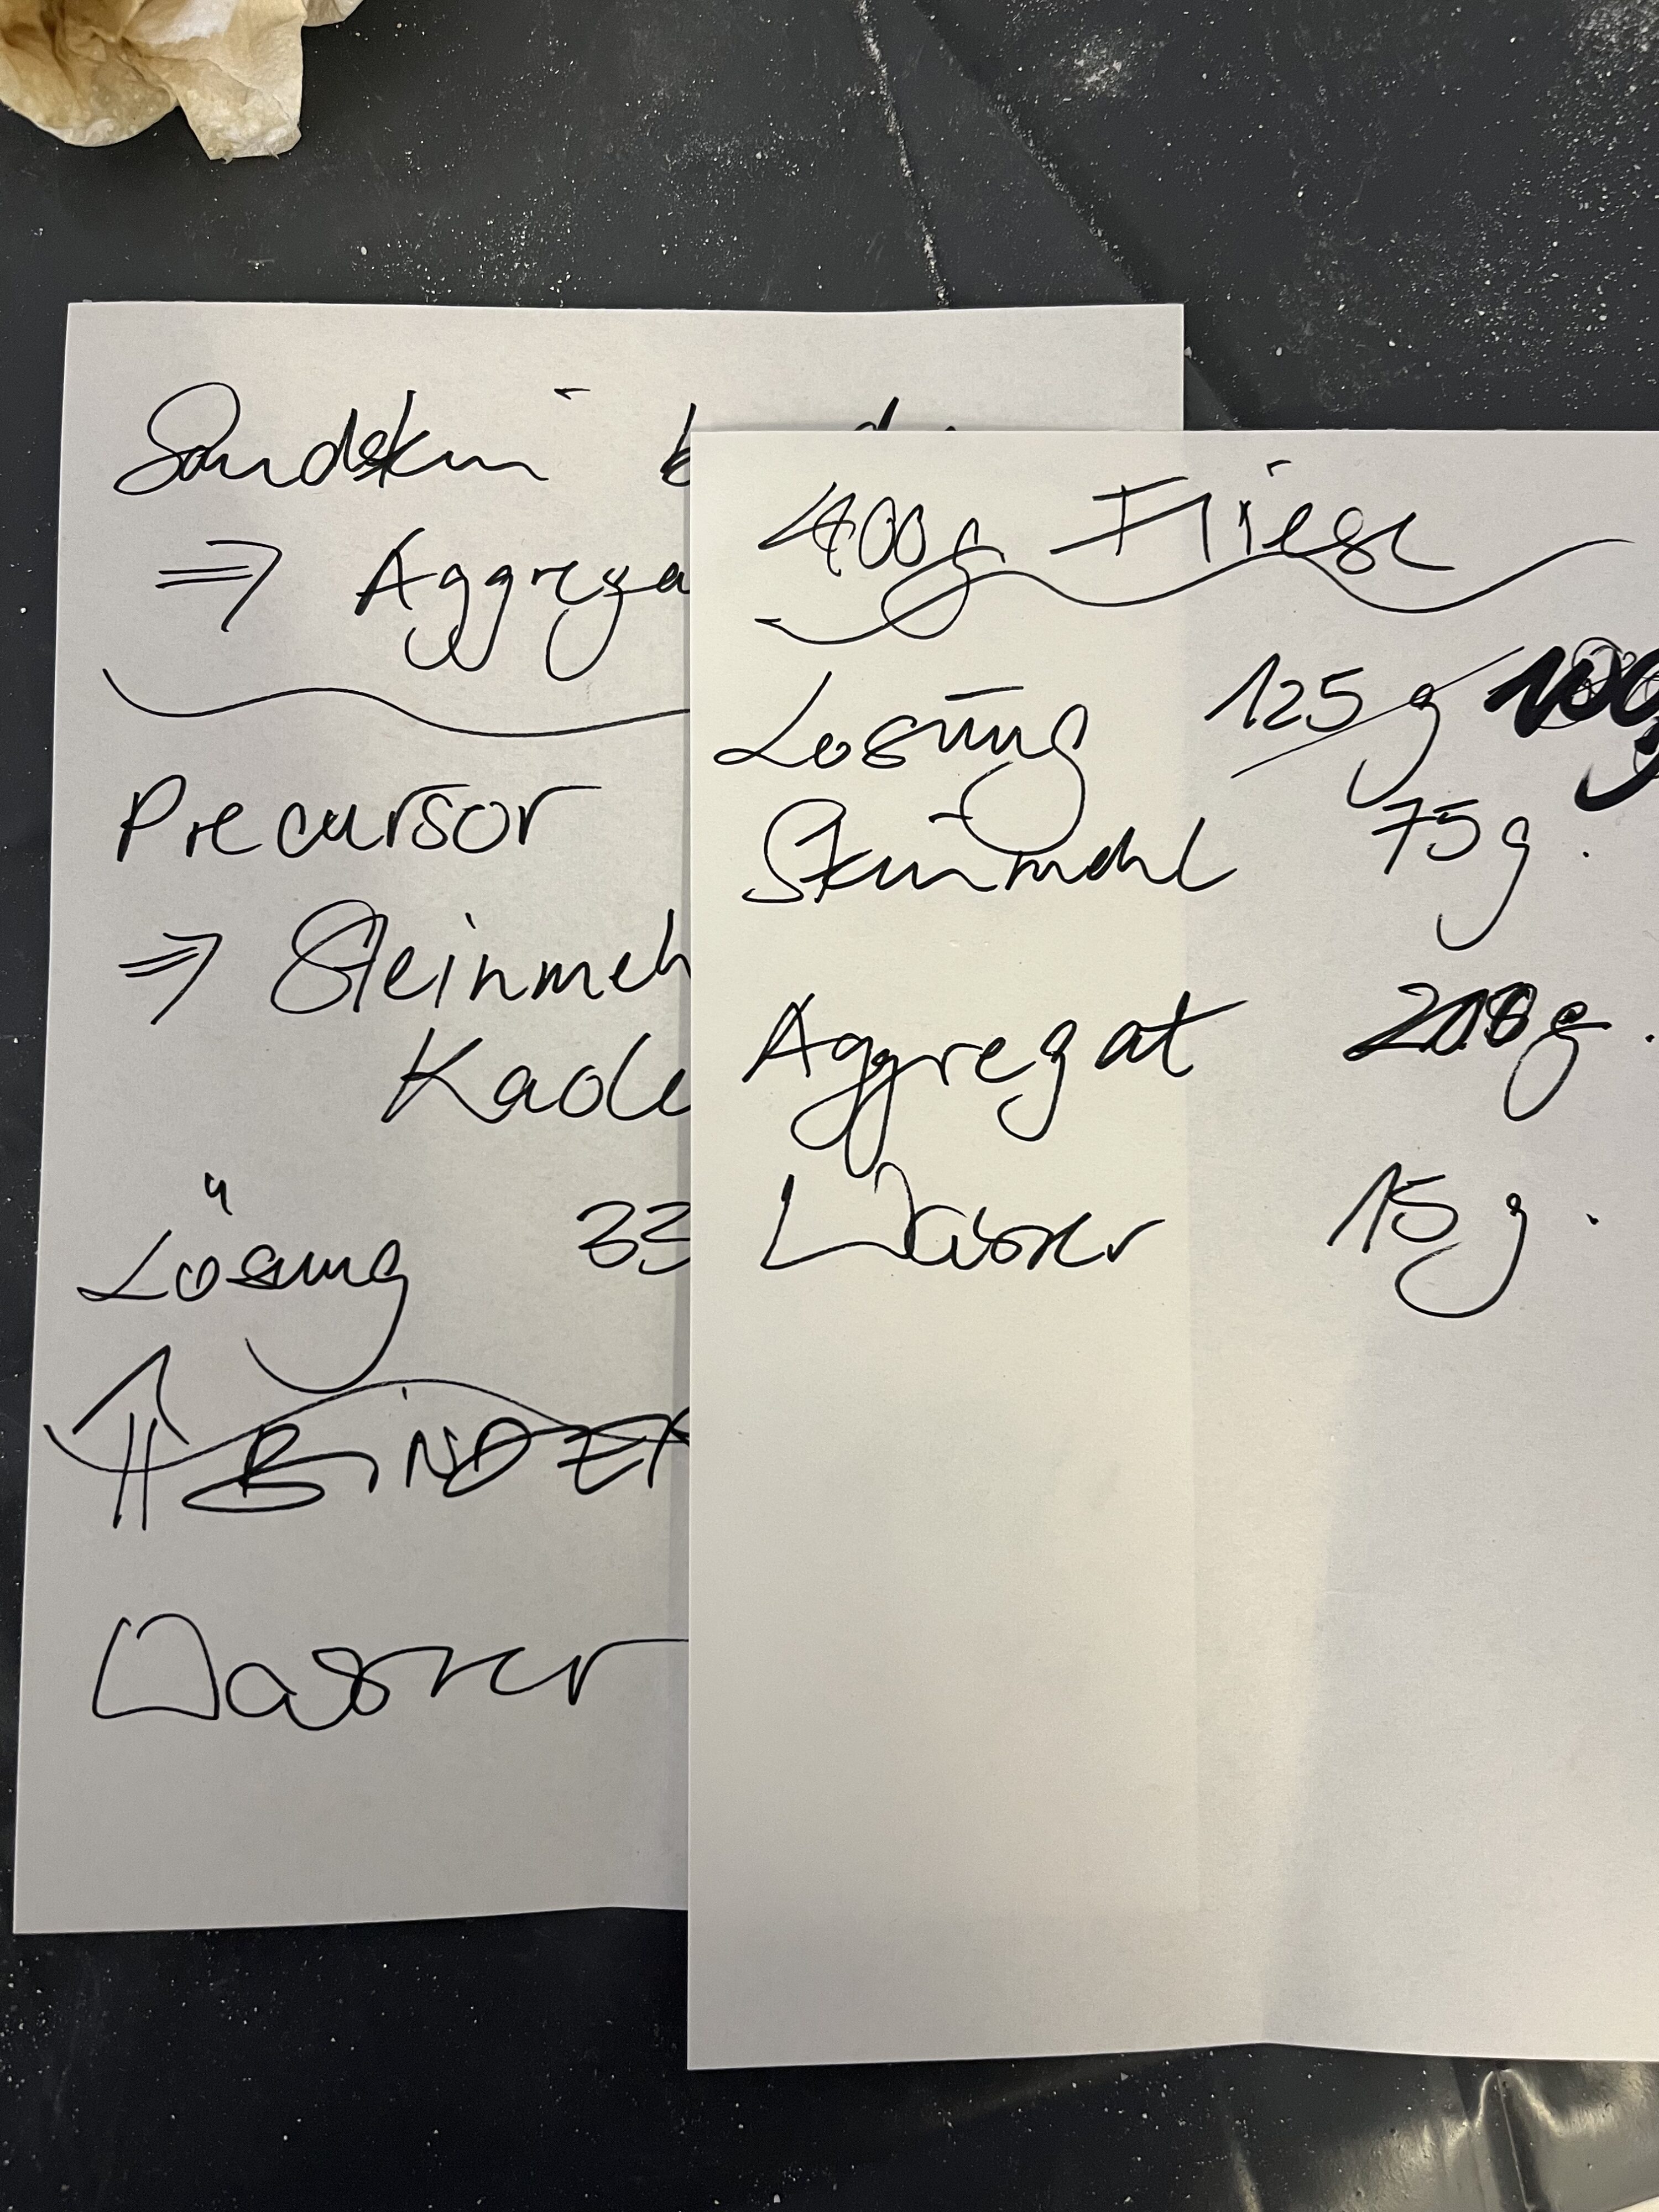 Sandstein
⇒ Aggrega
Precursor
⇒ Steinmeh
Kaole
Lösung 33
⇑ BINDER
Wasser
400g Fliese
Losung 125g 100g
Steinmehl 75g.
Aggregat 210g.
Wasser 15g.